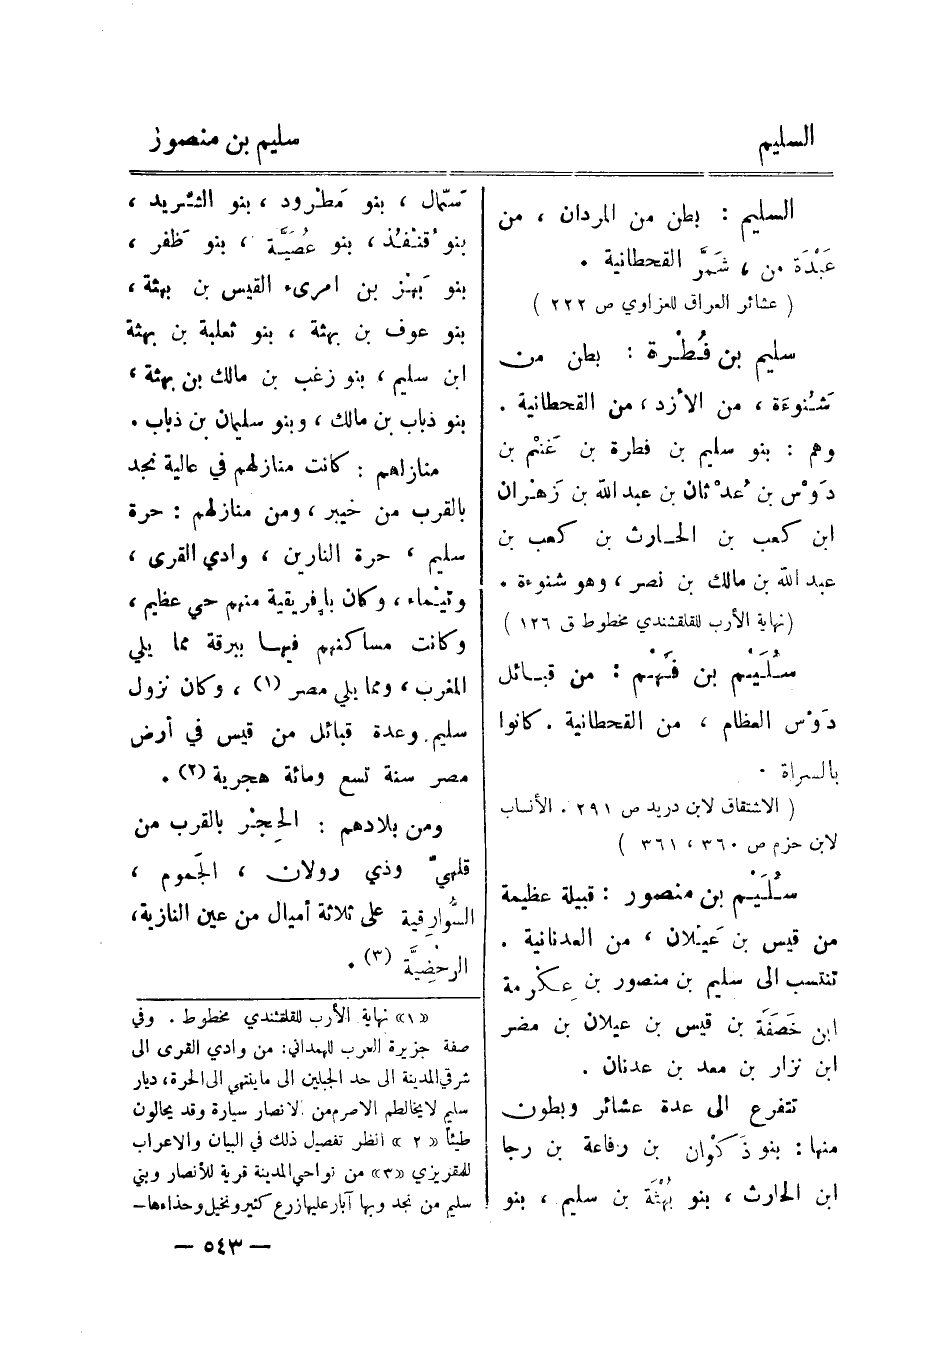 السليم
سليم بن منصور
السليم : بطن من المردان ، من
عَبْدَة من ، شمَّر القحطانية .
( عشائر العراق للعزاوي ص ٢٢٢ )
سليم بن فُطْرة : بطن من
شَنُوءَة ، من الأزد ، من القحطانية .
وهم : بنو سليم بن فطرة بن غَنْم بن
دَوْس بن عُدْثان بن عبد الله بن زَهْران
ابن كعب بن الحارث بن كعب بن
عبد الله بن مالك بن نصر ، وهو شنوءة .
(نهاية الأرب للقلقشندي مخطوط ق ١٢٦ )
سُلَيْم بن فَهْم : من قبائل
دَوْس العظام ، من القحطانية . كانوا
بالسراة .
( الاشتقاق لابن دريد ص ٢٩١ . الأنساب
لابن حزم ص ٣٦٠ ، ٣٦١ )
سُلَيْم بن منصور : قبيلة عظيمة
من قيس بن عَيْلان ، من العدنانية .
تنتسب الى سليم بن منصور بن عِكْرمة
ابن خَصَفَة بن قيس بن عيلان بن مضر
ابن نزار بن معد بن عدنان .
تتفرع الى عدة عشائر وبطون
منها : بنو ذَكْوان بن رفاعة بن رجا
ابن الحارث ، بنو بُهْثَة بن سليم ، بنو
سَمَّال ، بنو مَطْرود ، بنو الشَّريد ،
بنو قُنْفُذ ، بنو عُصَيَّة ، بنو ظَفر ،
بنو بَهْز بن امرىء القيس بن بهثة ،
بنو عوف بن بهثة ، بنو ثعلبة بن بهثة
ابن سليم ، بنو زغب بن مالك بن بهثة ،
بنو ذباب بن مالك ، وبنو سليمان بن ذباب .
منازلهم : كانت منازلهم في عالية نجد
بالقرب من خيبر ، ومن منازلهم : حرة
سليم ، حرة النارين ، وادي القرى ،
وتَيْماء ، وكان بإفريقية منهم حي عظيم ،
وكانت مساكنهم فيها ببرقة مما يلي
المغرب ، ومما يلي مصر (١) ، وكان نزول
سليم وعدة قبائل من قيس في أرض
مصر سنة تسع ومائة هجرية (٢) .
ومن بلادهم : الحِجْر بالقرب من
قلهيّ وذي رولان ، الجَموم ،
السُّوارقية على ثلاثة أميال من عين النازية،
الرحْضِيَّة (٣) .
«١» نهاية الأرب للقلقشندي مخطوط . وفي
صفة جزيرة العرب للهمداني: من وادي القرى الى
شرقي المدينة الى حد الجبلين الى ما ينتهي الى الحرة، ديار
سليم لا يخالطم الاصرم من الانصار سيارة وقد يحالون
طيئاً «٢» انظر تفصيل ذلك في البيان والاعراب
للمقريزي «٣» من نواحي المدينة قرية للأنصار وبني
سليم من نجد وبها آبار عليها زرع كثير ونخيل وحذاءها—
— ٥٤٣ —